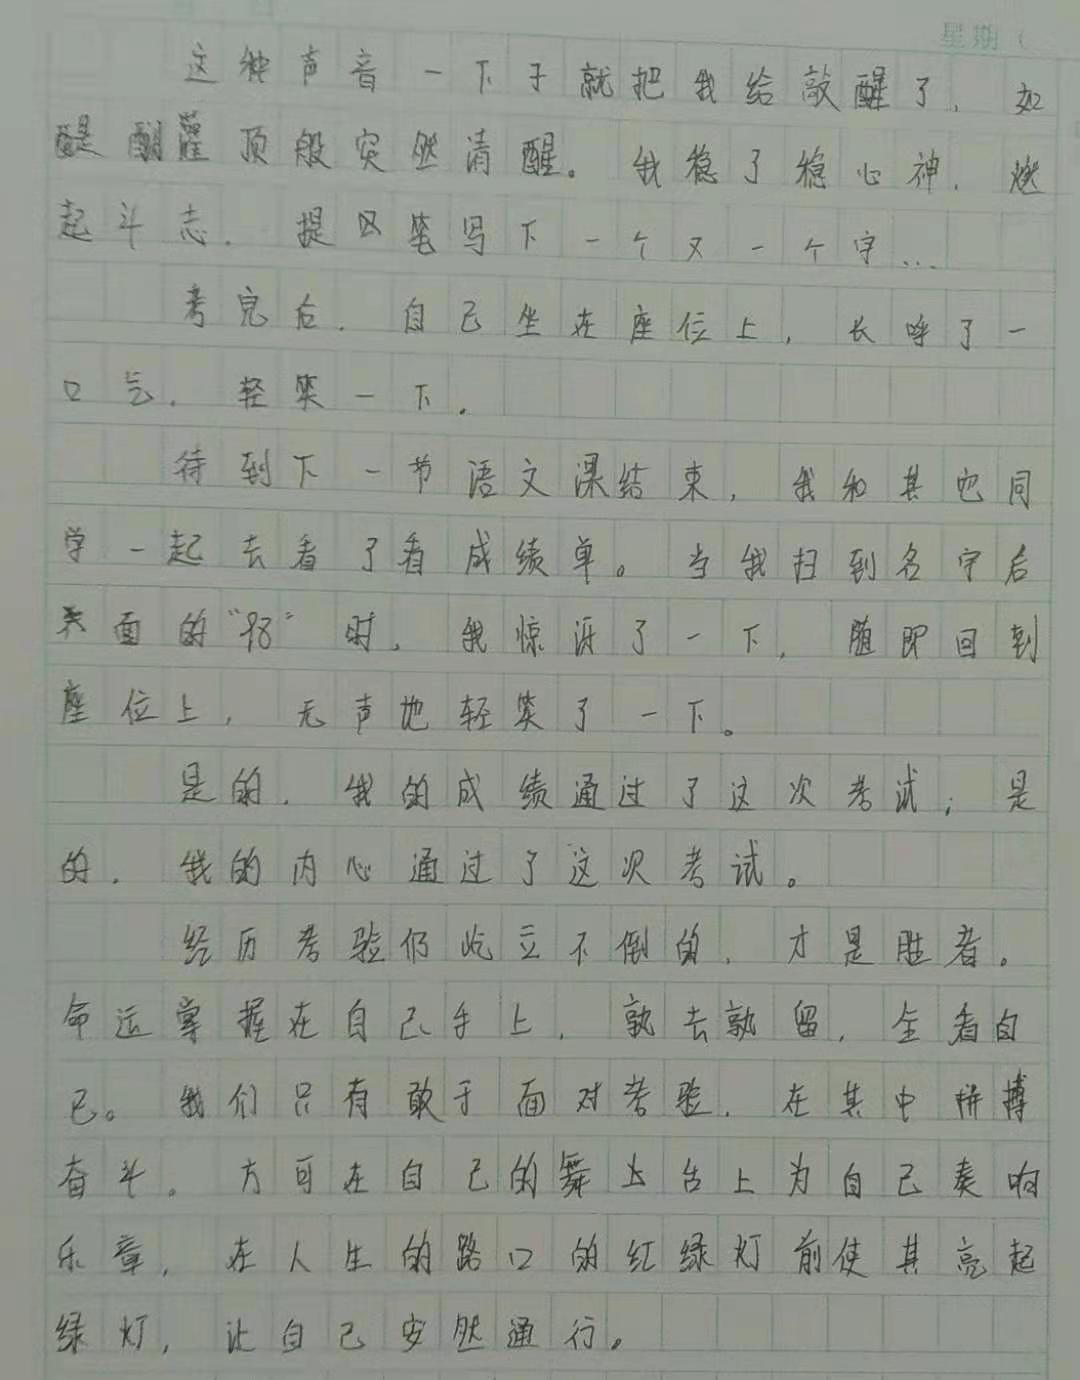 星期（
这种声音一下子就把我给敲醒了，如
醍醐灌顶般突然清醒。我稳了稳心神，燃
起斗志，提笔写下一个又一个字…
考完后，自己坐在座位上，长呼了一
口气，轻笑一下。
待到下一节语文课结束，我和其他同
学一起去看了看成绩单。当我扫到名字后
面的“98”时，我惊讶了一下，随即回到
座位上，无声地轻笑了一下。
是的，我的成绩通过了这次考试；是
的，我的内心通过了这次考试。
经历考验仍屹立不倒的，才是胜者。
命运掌握在自己手上，孰去孰留，全看自
己。我们只有敢于面对考验，在其中拼搏
奋斗。方可在自己的舞台上为自己奏响
乐章，在人生的路口的红绿灯前使其亮起
绿灯，让自己安然通行。